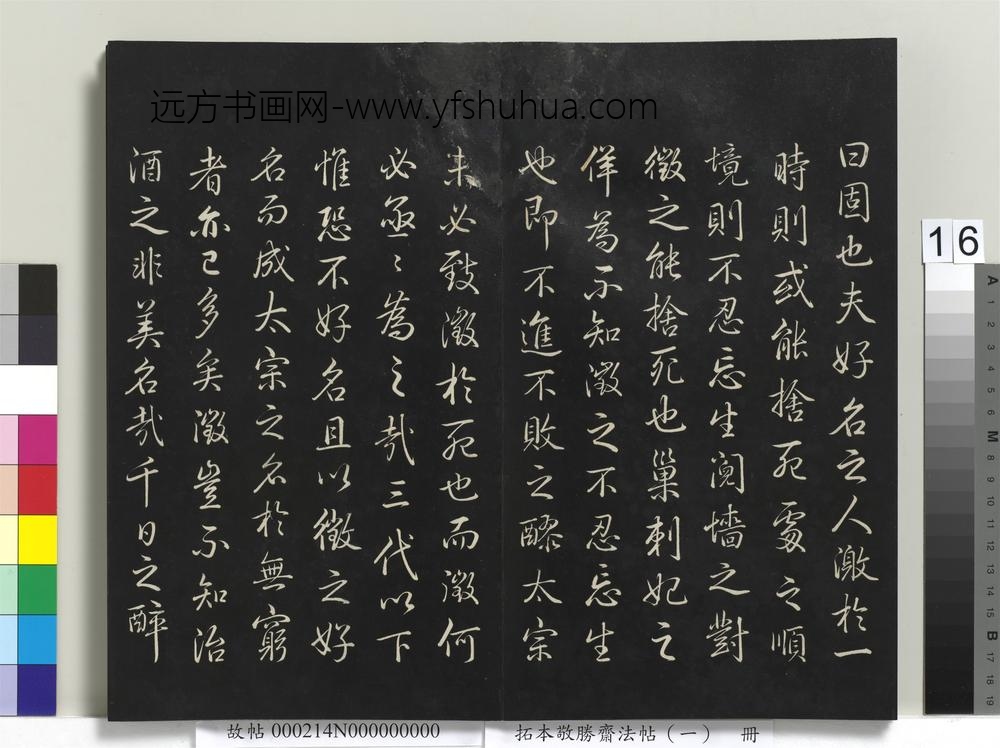 远方书画网-www.yfshuhua.com
曰固也夫好名之人激於一
時則或能捨死處之順
境則不忍忘生鬩墻之對
徵之能捨死也巢刺妃之
佯為不知徵之不忍忘生
也即不進不敗之醪太宗
未必致徵於死也而徵何
必亟亟為之哉三代以下
惟恐不好名且以徵之好
名而成太宗之名於無窮
者亦已多矣徵豈不知治
酒之非美名哉千日之醉
16
A 1 2 3 4 5 6 M 8 9 10 11 12 13 14 15 B 17 18 19
故帖 000214N000000000
拓本敬勝齋法帖（一） 冊